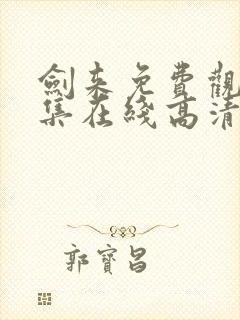 劍来免費觀
集在綫高清
郭寶昌